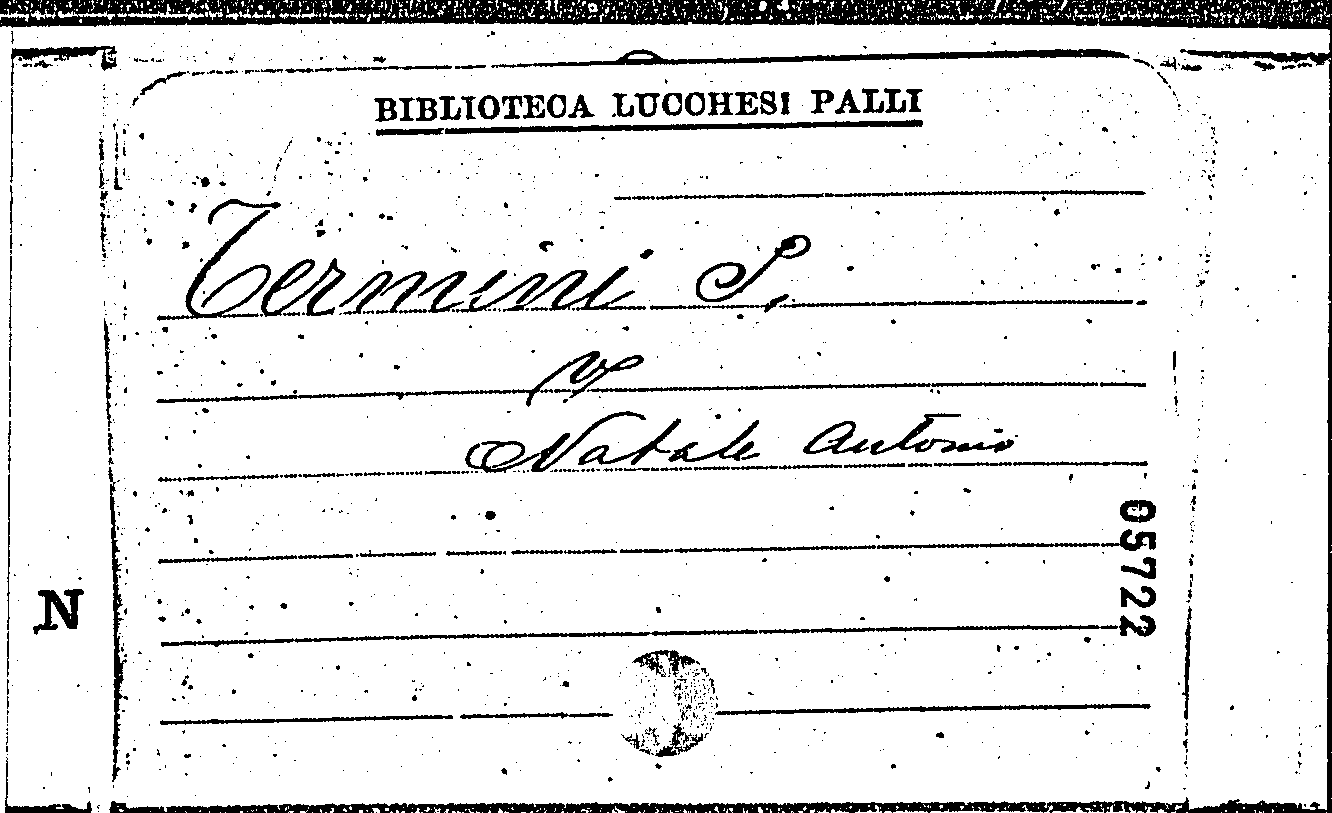 BIBLIOTECA LUCCHESI PALLI
Termini S.
V
Natale Antonio
05722
N